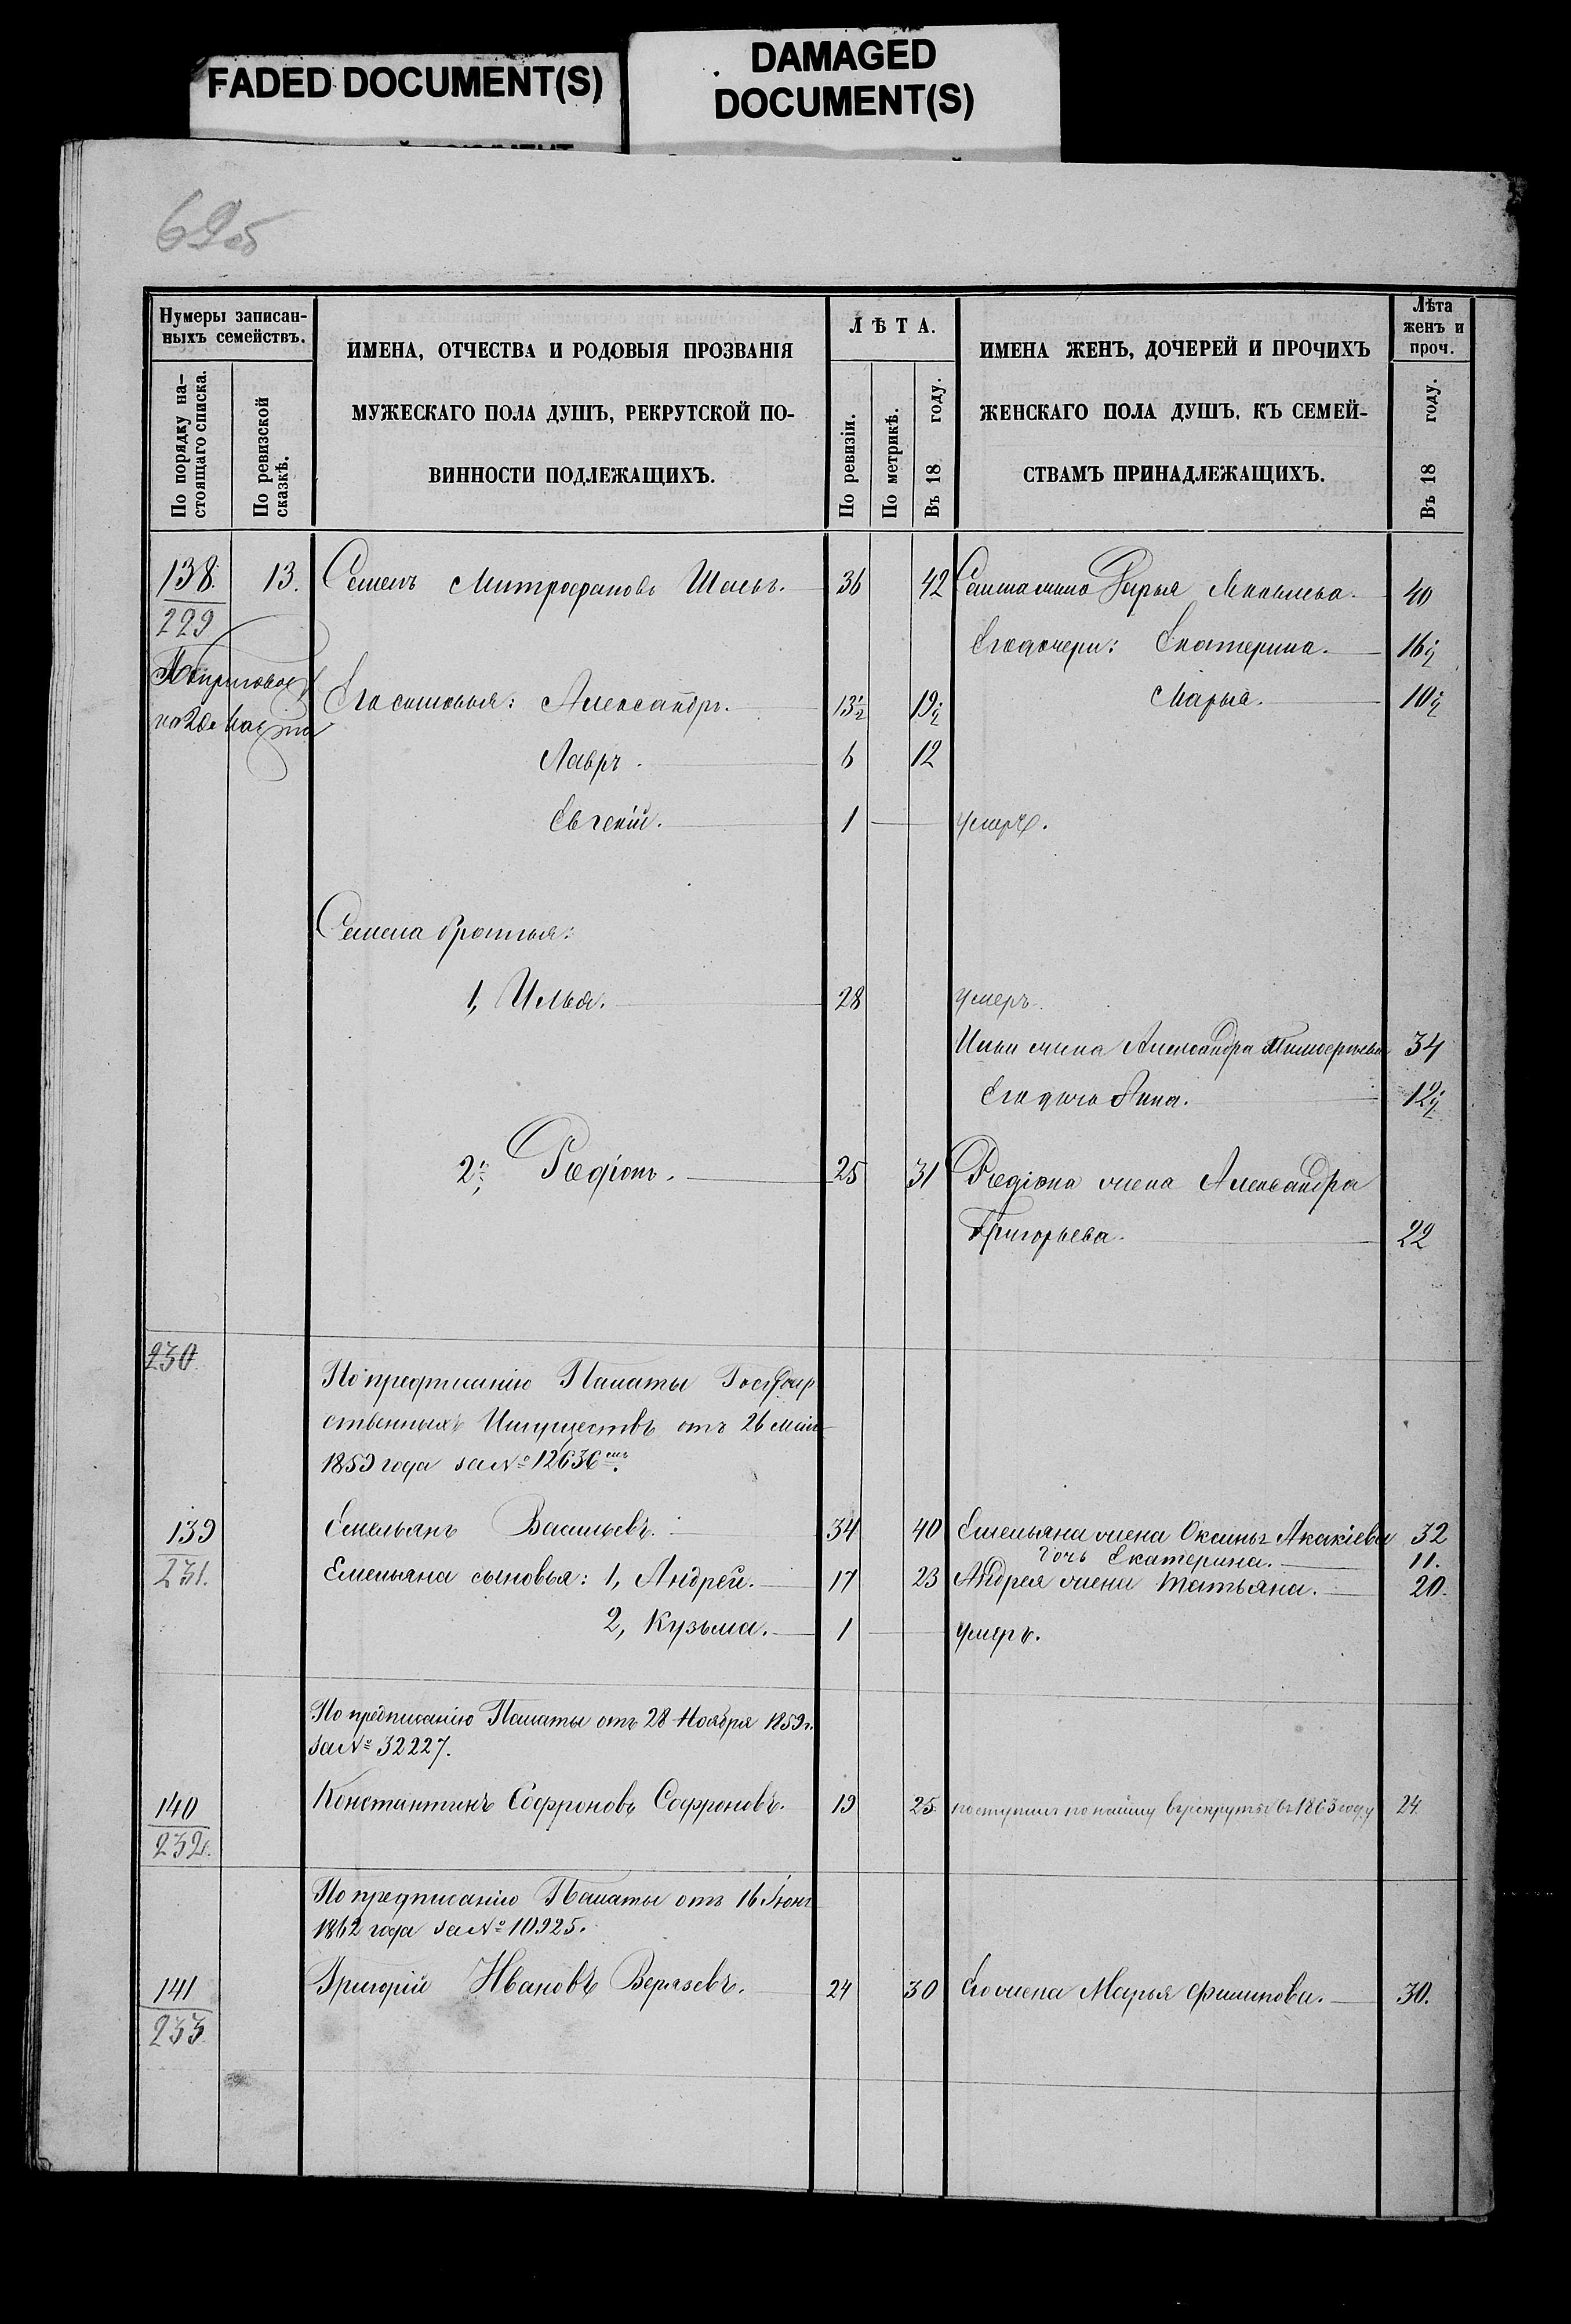 FADED DOCUMENT(S)
DAMAGED
DOCUMENT(S)
69об
Нумеры записан-
ныхъ семействъ.
По порядку на-
стоящаго списка.
По ревизской
сказкѣ.
ИМЕНА, ОТЧЕСТВА И РОДОВЫЯ ПРОЗВАНІЯ
МУЖЕСКАГО ПОЛА ДУШЪ, РЕКРУТСКОЙ ПО-
ВИННОСТИ ПОДЛЕЖАЩИХЪ.
ЛѢТА.
По ревизіи.
По метрикѣ.
Въ 18 году.
ИМЕНА ЖЕНЪ, ДОЧЕРЕЙ И ПРОЧИХЪ
ЖЕНСКАГО ПОЛА ДУШЪ, КЪ СЕМЕЙ-
СТВАМЪ ПРИНАДЛЕЖАЩИХЪ.
Лѣта
женъ и
проч.
Въ 18 году.
138. 13. Семенъ Митрофановъ 36 42 Дарья 40
229
Его дочери: Екатерина. 16½
Его сыновья: Александръ. 13½ 19½ Марья. 10½
Лавръ. 6 12
Евгеній. 1 умеръ.
Семена братья:
1, Илья. 28 умеръ.
Ильи жена Александра 34
Его дочь Анна. 12½
2, Родіонъ. 25 31 Родіона жена Александра
Григорьева. 22
230.
По предписанію Палаты Государ
ственныхъ Имуществъ отъ 26 мая
1859 года за № 12636
139 Емельянъ Васильевъ. 34 40 Емельяна жена Оксинья Акакіева 32
дочь Екатерина. 11.
231. Емельяна сыновья: 1, Андрей. 17 23 Андрея жена Татьяна. 20.
2, Кузьма. 1 умеръ.
По предписанію Палаты отъ 28 Ноября 1859 г.
за № 32227.
140 Константинъ Софроновъ Софроновъ. 19 25. поступилъ по найму въ рекруты въ 1863 году 24.
232.
По предписанію Палаты отъ 16 Іюня
1862 года за № 10925.
141 Григорій Ивановъ 24 30 Его жена Марья Филипова. 30.
233